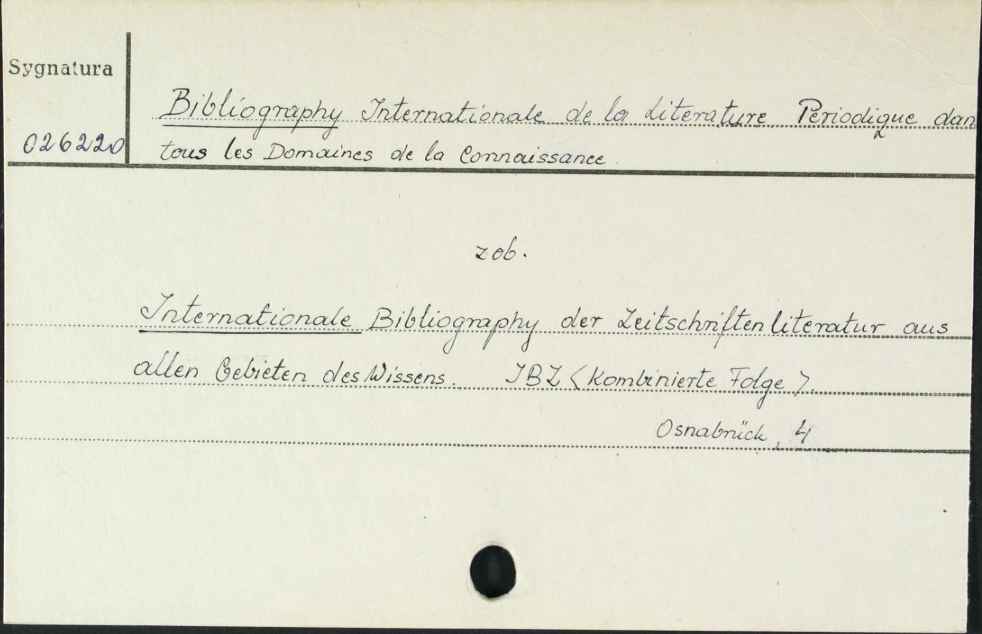 Sygnatura
Bibliography Internationale de la Literature Periodique dan
026220
tous les Domaines de la Connaissance.
zob.
Internationale Bibliography der Zeitschriftenliteratur aus
allen Gebieten des Wissens. IBZ <Kombinierte Folge>.
Osnabrück, 4